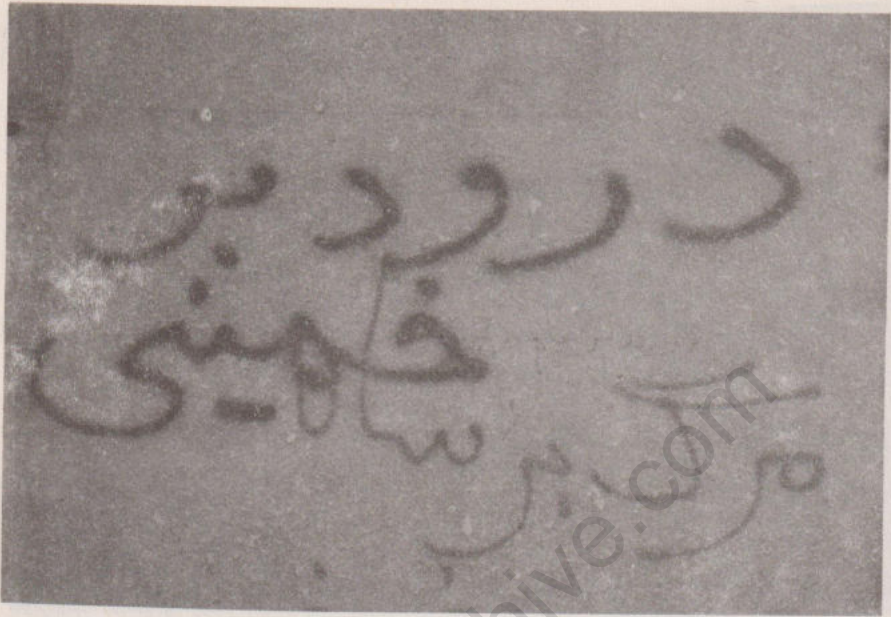 درود بر
خمینی
مرگ بر شاه
hive.com